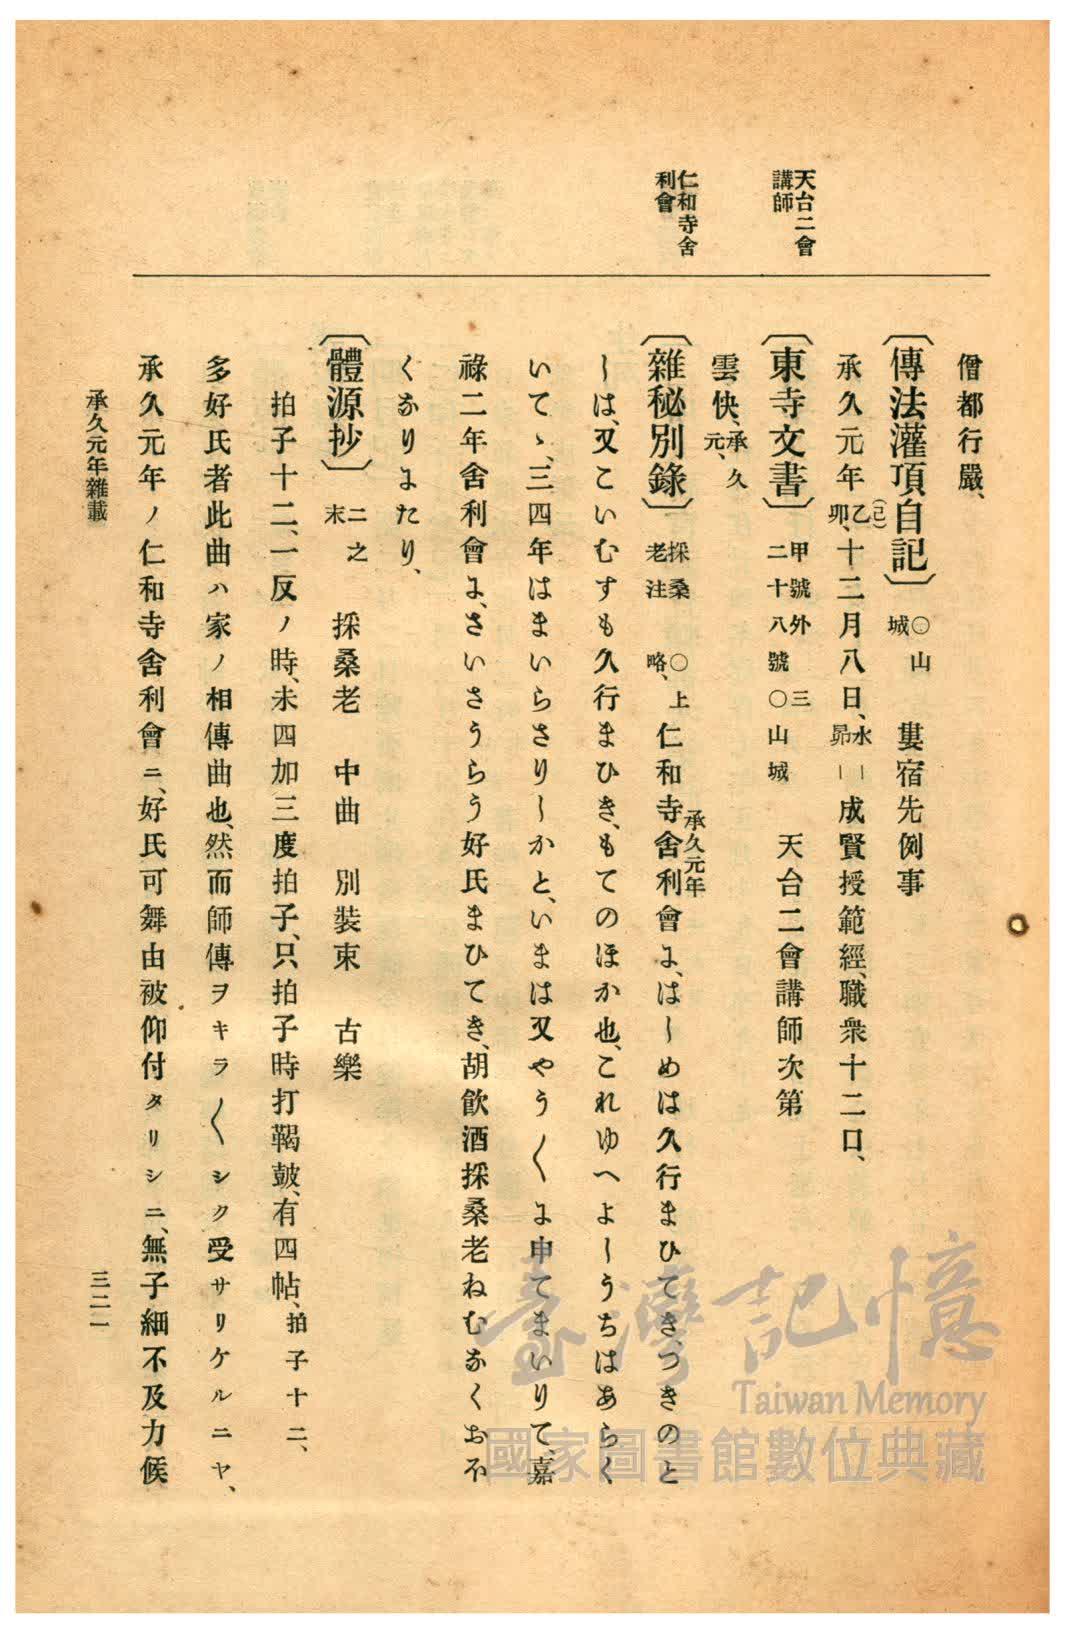 天台二會
講師
仁和寺舍
利會
僧都行嚴、
〔傳法灌頂自記〕〇山城 婁宿先例事
承久元年乙(己)卯、十二月八日、水—昴—成賢授範經、職衆十二口、
〔東寺文書〕甲號外三二十八號〇山城 天台二會講師次第
雲快、承久元、
〔雜秘別錄〕採桑老注 〇上略、仁和寺舍利會に、はしめは久行まひてき、つきのと
承久元年
しは、又こいむすも久行まひき、もてのほか也、これゆへよしうちはあらく
いてゝ、三四年はまいらさりしかと、いまは又やう〱に申てまいりて、嘉
祿二年舍利會に、さいさうらう好氏まひてき、胡飮酒採桑老ねむなくおほ
くなりにたり、
〔體源抄〕二之末 採桑老 中曲 別裝束 古樂
拍子十二、一反ノ時、未四加三度拍子、只拍子時打鞨鼓、有四帖、拍子十二、
多好氏者此曲ハ家ノ相傳曲也、然而師傳ヲキラ〱シク受サリケルニヤ、
承久元年ノ仁和寺舍利會ニ、好氏可舞由被仰付タリシニ、無子細不及力候
承久元年雜載
三二一
臺灣記憶
Taiwan Memory
國家圖書館數位典藏